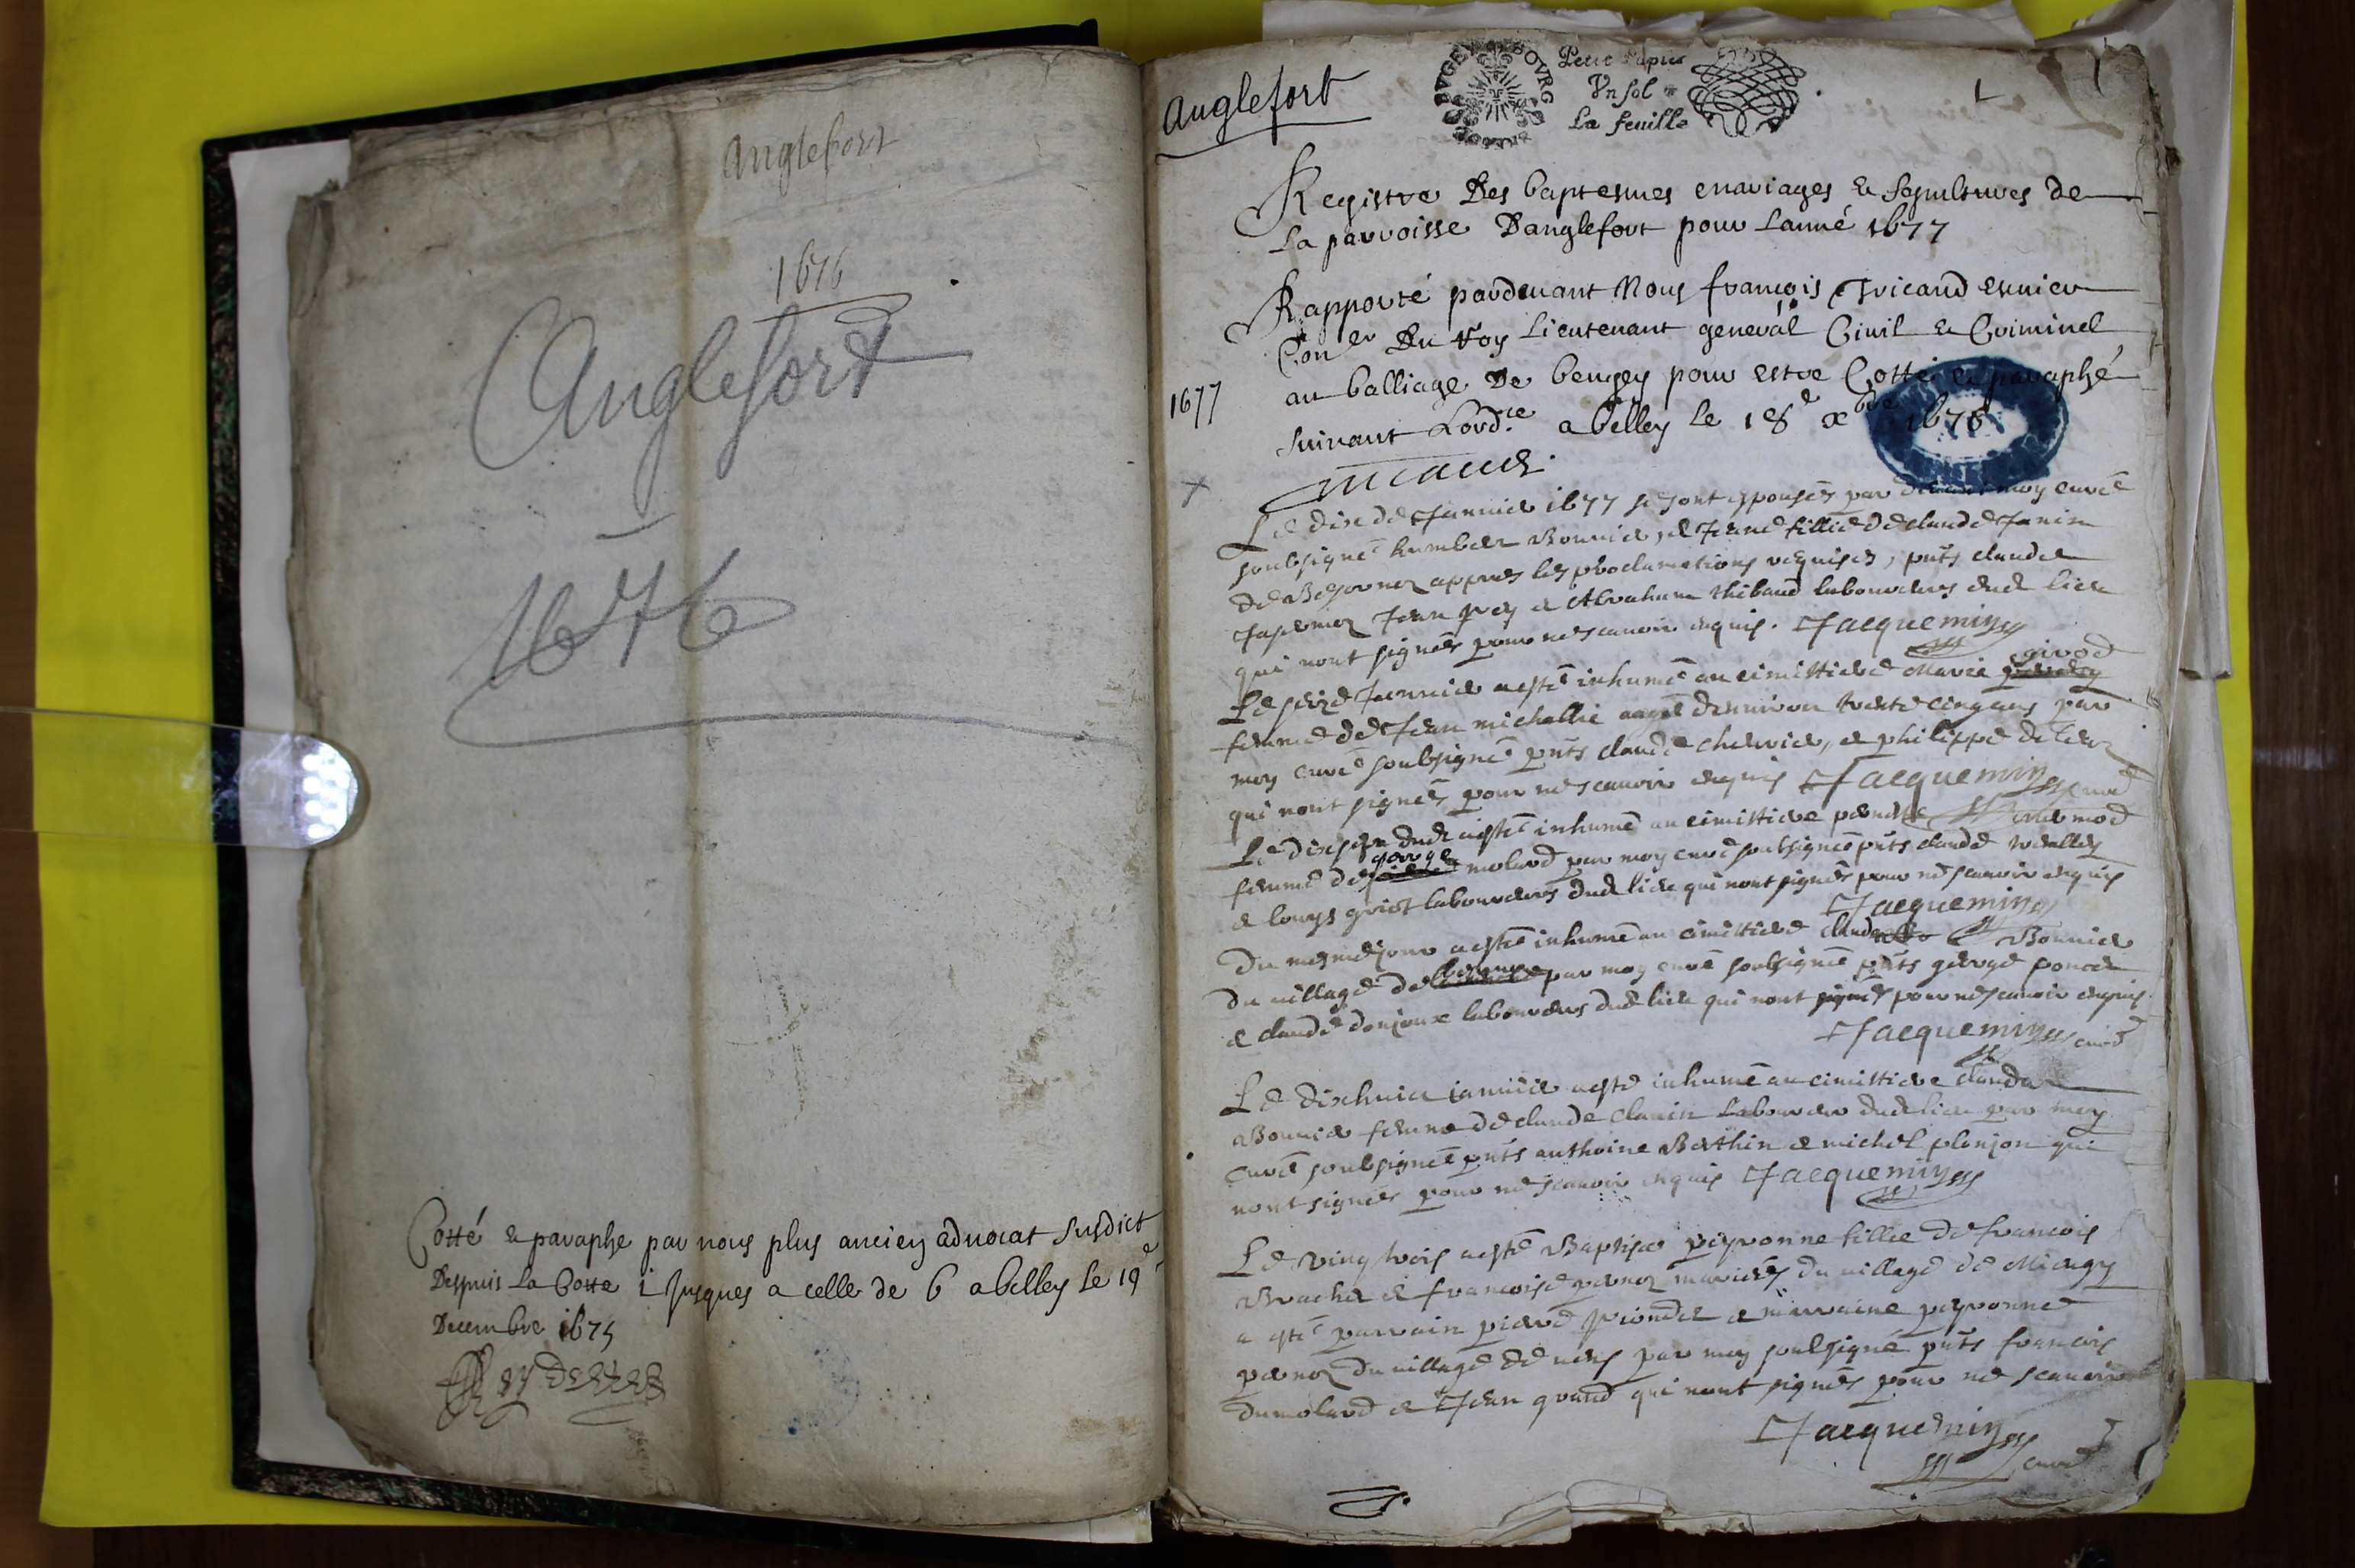 Anglefort
1676
Anglefort
1676
Cotté & paraphe par nous plus ancien advocat susdict
Despuis la Cotte i jusques a celle de 6 a belley le 19e
Decembre 1675
Anglefort
BVGEY BOVRG
Petit Papier
Vn sol
La feuille
1
Registre Des baptesmes mariages & sepultures de
La parroisse Danglefort pour Lanné 1677
Rapporté pardeuant Nous françois Tricaud escuier
Coner Du Roy Lieutenant general Ciuil & Criminel
1677
au balliage De beugey pour estre Cotté & paraphé
suiuant Lordce a belley le 18e xbre 1676
Tricaud
Le dix de Januier 1677 se sont espousés par deuant moy curé
soubsigné humber Bonnier, et Jeane fillie de claude Janin
de apprés les proclamations requises, pnts claude
Jean et Abraham thibaud laboureurs dud lieu
qui nont signés pour ne scauoir enquis. Jacquemin
Le seize Januier a esté inhumé au cimittiere Marie girod
femme de Jean michallie aagé denuiron trente cinq ans par
moy curé soubsigné pnts claude cheruier, et philippe
qui nont signés pour ne scauoir enquis Jacquemin curé
Le dix sept dud a esté inhumé au cimittiere pernette
femme de george molard par moy curé soubsigné pnts claude
et louys griot laboureurs dud lieu qui nont signés pour ne scauoir enquis
Jacquemin
Du mesme jour a esté inhumé au cimittiere Bonnier
du uillage de par moy curé soubsigné pnts george poncet
et claude donjoux laboureurs dud lieu qui nont signés pour ne scauoir enquis
Jacquemin curé
Le dixhuict januier a esté inhumé au cimittiere clauda
Bonnier femme de claude clauin laboureur dud lieu par moy
curé soubsigné pnts anthoine Berthin et michel plonjon qui
nont signés pour ne scauoir enquis Jacquemin
Le vingt trois a esté Baptisee peyronne fillie de francois
Brachet et francoise pernoz mariés du uillage de Mieugy
a esté parrain pierre et marraine peyronne
pernoz du uillage de par moy soubsigné pnts francois
dumolard et Jean grand qui nont signés pour ne scauoir
Jacquemin
curé